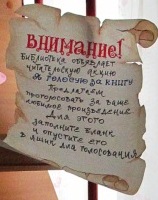 Внимание!
Библиотека объявляет
читательскую акцию
Я голосую за книгу
Предлагаем
проголосовать за ваше
любимое произведение
Для этого
заполните бланк
и опустите его
в ящик для голосования